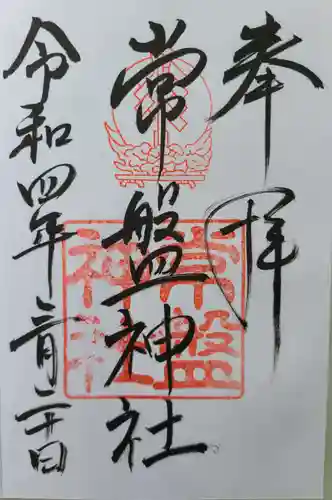 奉拝
常盤神社
常盤神社
令和四年二月二十日